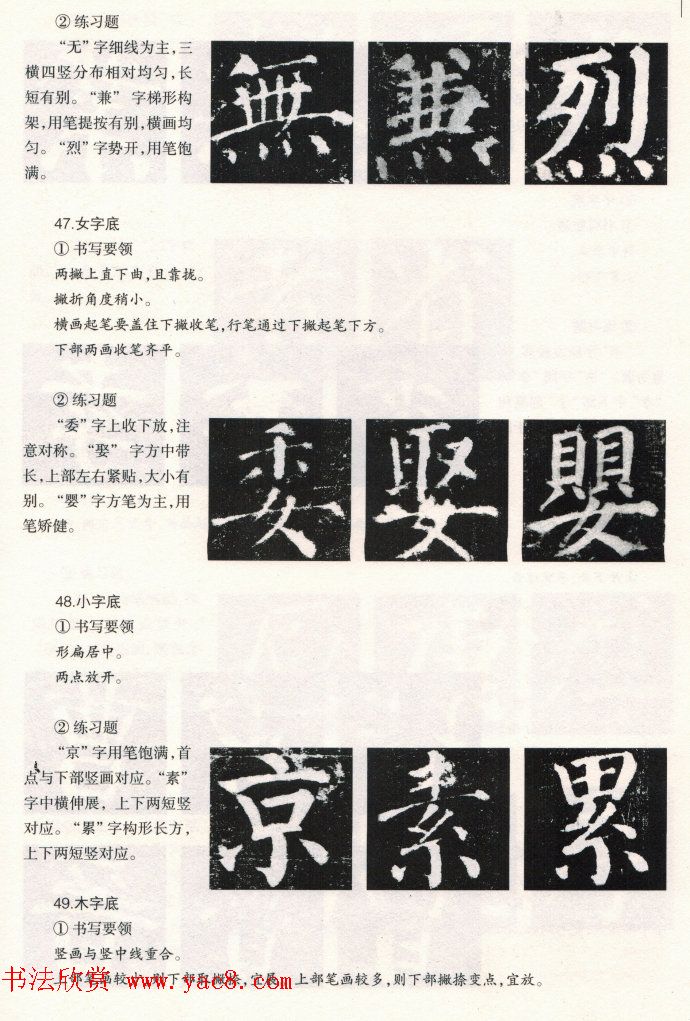 ② 练习题
“无”字细线为主,三
横四竖分布相对均匀,长
短有别。“兼” 字梯形构
架,用笔提按有别,横画均
匀。“烈”字势开,用笔饱
满。
無 兼 烈
47.女字底
① 书写要领
两撇上直下曲,且靠拢。
撇折角度稍小。
横画起笔要盖住下撇收笔,行笔通过下撇起笔下方。
下部两画收笔齐平。
② 练习题
“委”字上收下放,注
意对称。“娶” 字方中带
长,上部左右紧贴,大小有
别。“婴”字方笔为主,用
笔矫健。
委 娶 嬰
48.小字底
① 书写要领
形扁居中。
两点放开。
② 练习题
“京”字用笔饱满,首
点与下部竖画对应。“素”
字中横伸展, 上下两短竖
对应。“累”字构形长方,
上下两短竖对应。
京 素 累
49.木字底
① 书写要领
竖画与竖中线重合。
上部笔画较少,则下部取撇捺,宜展。上部笔画较多,则下部撇捺变点,宜放。
书法欣赏 www.yac8.com